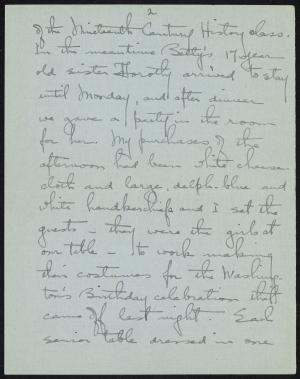 2
of the Nineteenth Century History class.
In the meantime Betty's 17 year
old sister Dorothy arrived to stay
until Monday, and after dinner
we gave a party in the room
for her. My purchases of the
afternoon had been white cheese-
cloth and large, delph-blue and
white handkerchiefs and I set the
guests - they were the girls at
our table - to work making
their costumes for the Washing-
ton's Birthday celebration that
came off last night. Each
senior table dressed in one